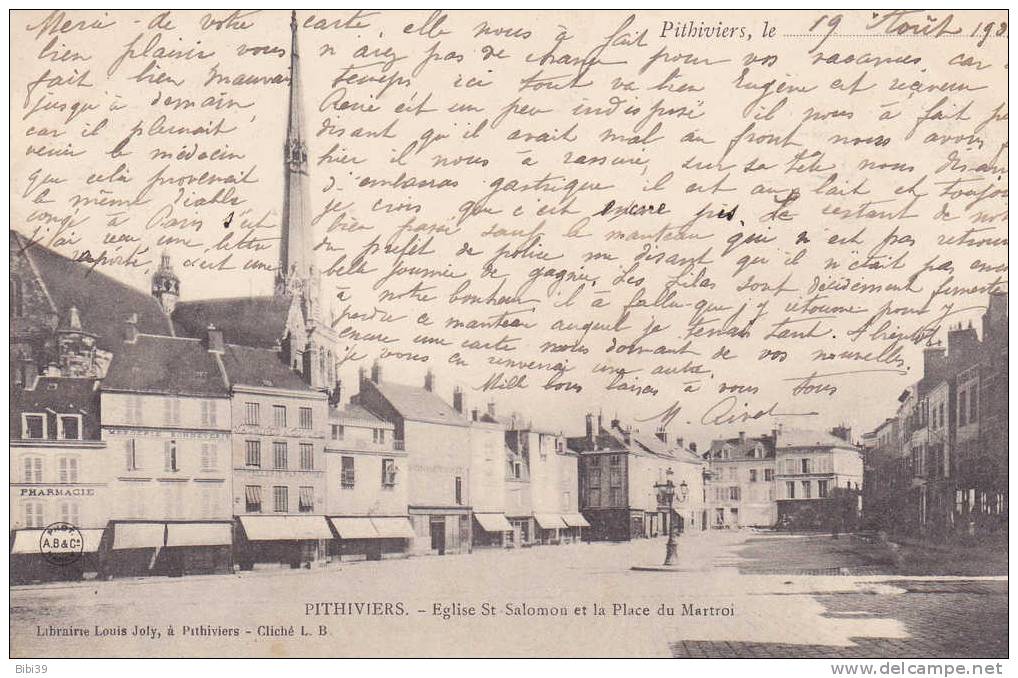 Pithiviers, le 19 Août 190
Merci de votre carte, elle nous a fait
bien plaisir vous n'avez pas de chance pour vos vacances, car
fait bien mauvais temps ici tout va bien Eugène est
jusqu'à demain René est un peu indisposé il nous a fait
car il pleurait disant qu'il avait mal au front nous avons fait
venir le médecin hier il nous a rassuré, sur sa tête nous disant
que cela provenait d'embarras gastrique il est au lait et toujours
le même diable je crois que c'est encore pis. Le restant de notre
congé à Paris s'est bien passé sauf le manteau qui n'est pas
j'ai reçu une lettre du préfet de police me disant qu'il n'était pas
c'est une belle journée de gagnée. Les Lilas sont décidément
à notre bonheur il a fallu que j'y retourne pour y
perdre ce manteau auquel je tenais tant.
encore une carte nous donnant de vos nouvelles.
je vous en renverrai une autre
Mille bons baisers à vous tous
PHARMACIE
PHOT.
A.B & Cie
PITHIVIERS. - Eglise St-Salomon et la Place du Martroi
Librairie Louis Joly, à Pithiviers - Cliché L. B.
Bibi39
www.delcampe.net